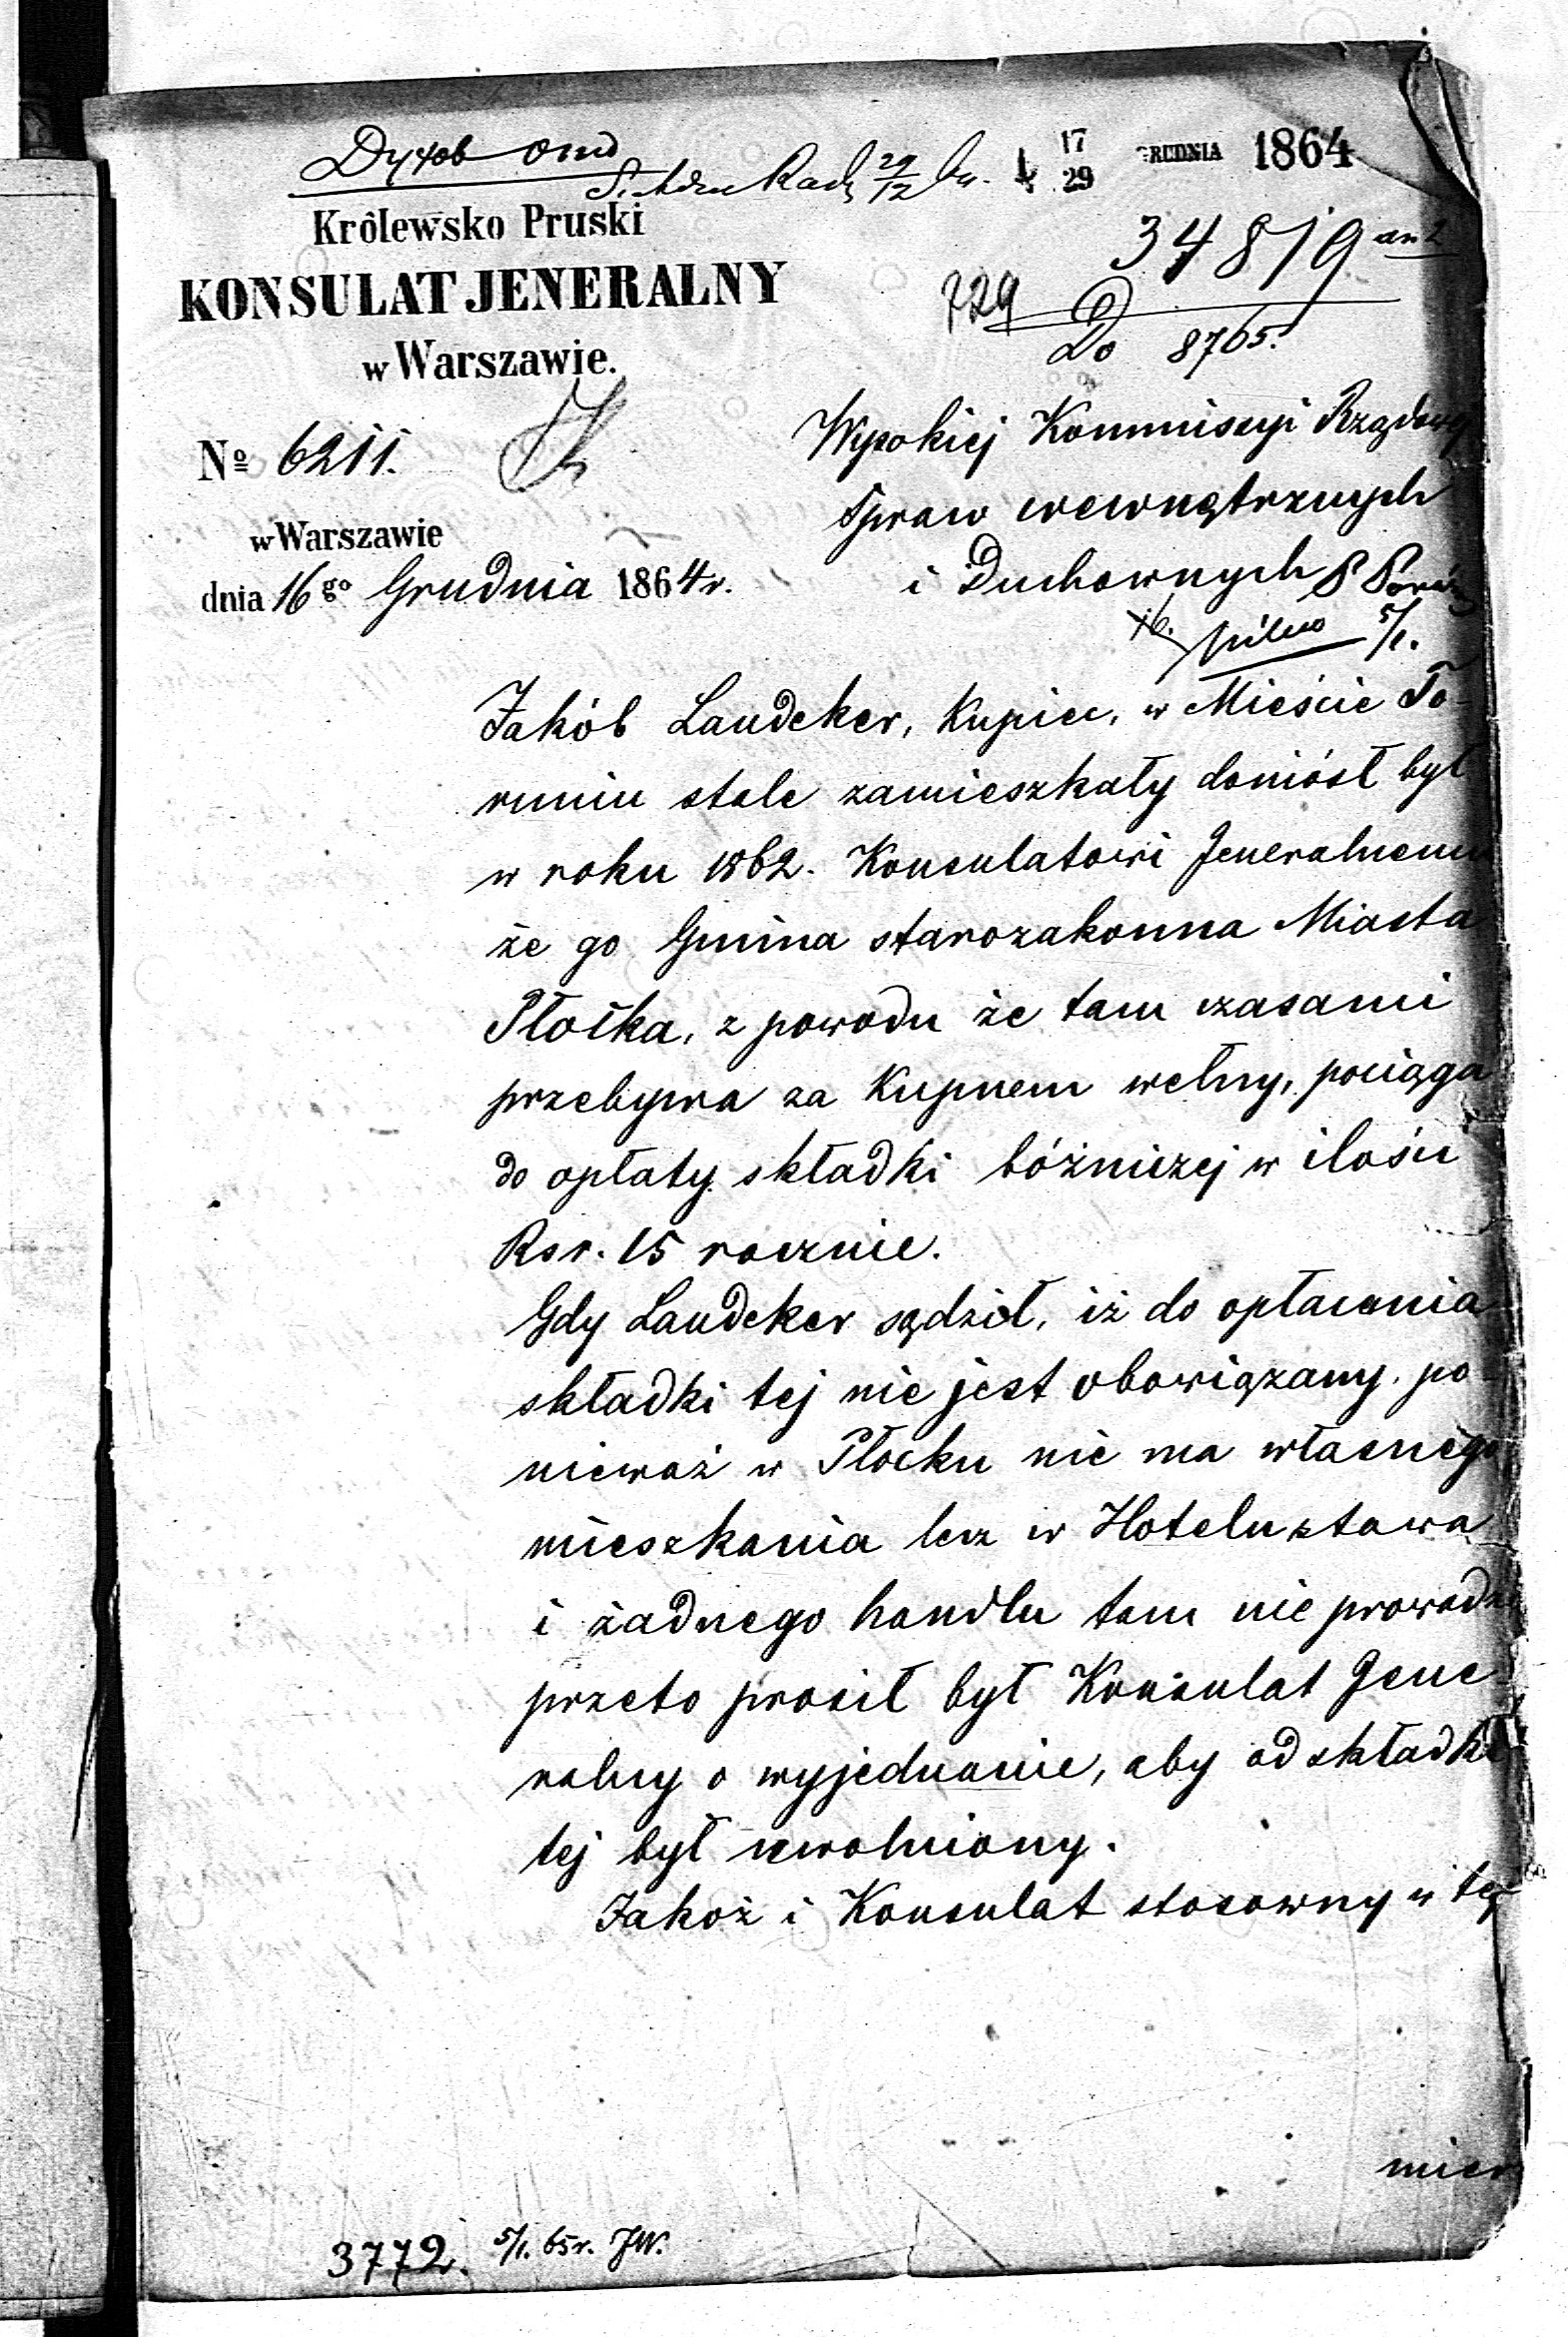 17
29 GRUDNIA 1864
Królewsko Pruski
34819
KONSULAT JENERALNY
729
Do 8765.
w Warszawie.
No 6211.
Wysokiej Kommissyi Rządowej
Spraw wewnętrznych
i Duchownych
w Warszawie
dnia 16go Grudnia 1864 r.
pilno 5/1.
Jakób Laudeker, Kupiec, w Mieście To-
runiu stale zamieszkały doniósł był
w roku 1862. Konsulatowi Jeneralnemu
że go Gmina starozakonna Miasta
Płocka, z powodu że tam czasami
przebywa za Kupnem wełny, pociąga
do opłaty składki bóżniczej w ilości
Rsr. 15 rocznie.
Gdy Laudeker sądził, iż do opłacenia
składki tej nie jest obowiązany, po-
nieważ w Płocku nie ma własnego
mieszkania lecz w Hotelu stawa
i żadnego handlu tam nie prowadzi
przeto prosił był Konsulat Jene-
ralny o wyjednanie, aby od składki
tej był uwolniony.
Jakoż i Konsulat stosowny w tej
mier
3772. 5/1. 65 r. JW.